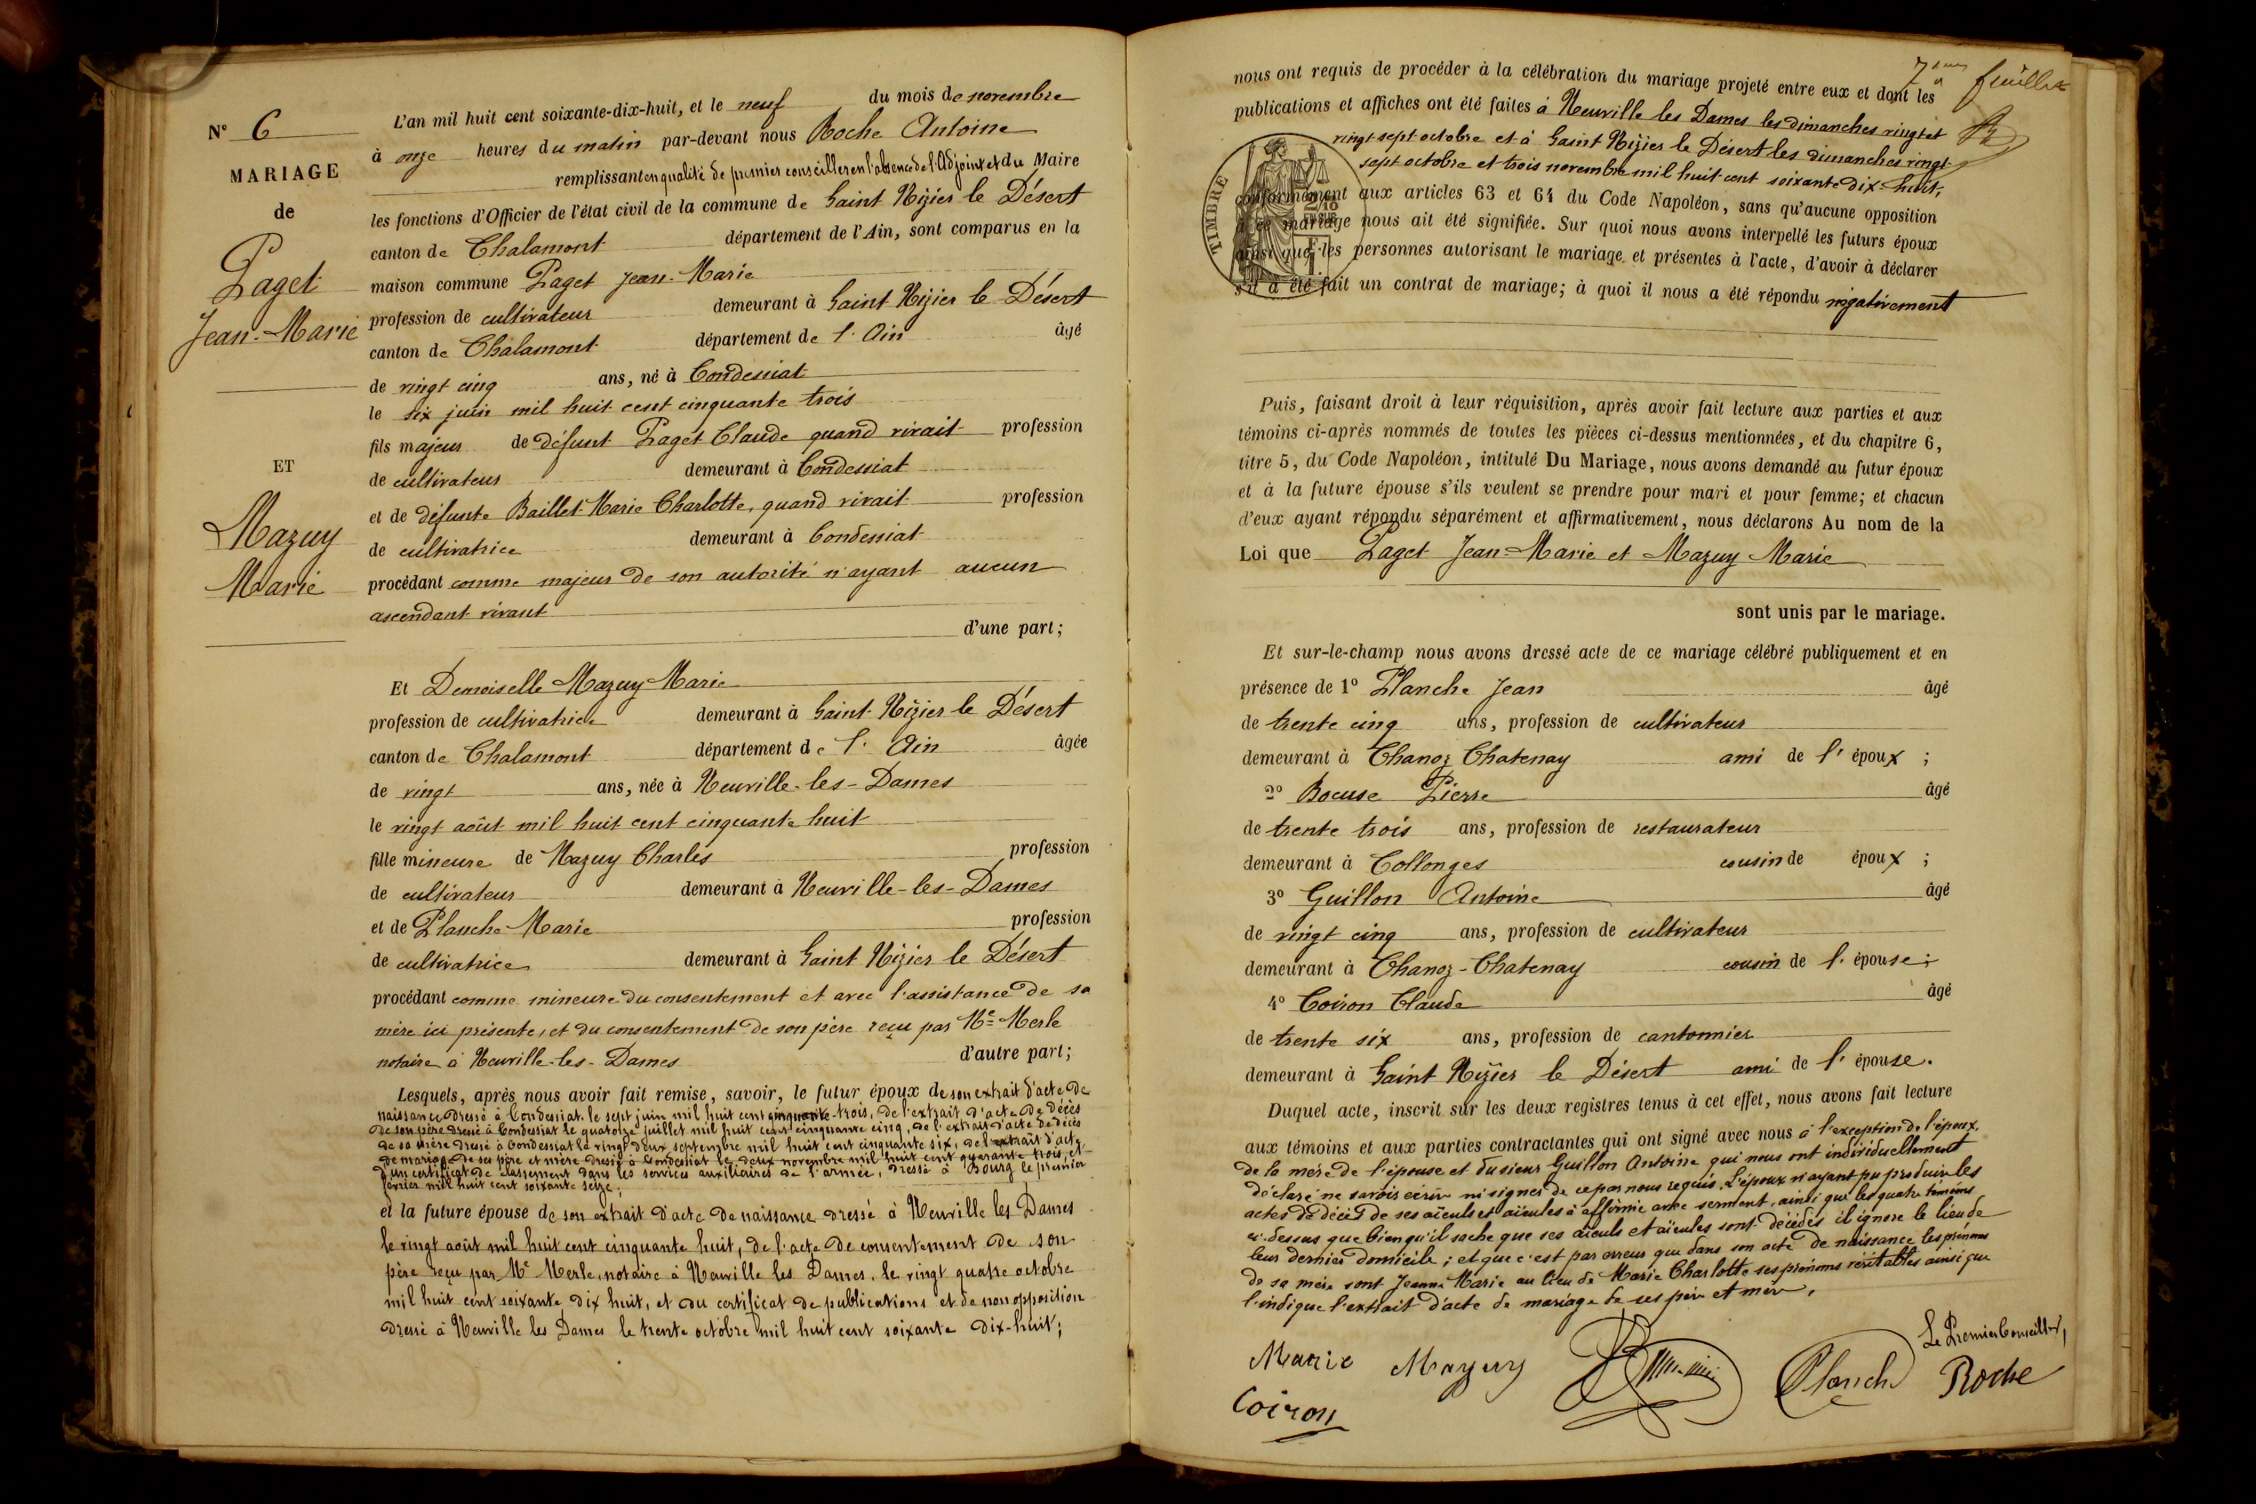 N° 6
MARIAGE
de
Paget
Jean-Marie
ET
Mazuy
Marie
L'an mil huit cent soixante-dix-huit, et le neuf du mois de novembre
à onze heures du matin par-devant nous Roche Antoine
remplissant en qualité de premier conseiller en l'absence de l'Adjoint et du Maire
les fonctions d'Officier de l'état civil de la commune de Saint Nizier le Désert
canton de Chalamont département de l'Ain, sont comparus en la
maison commune Paget Jean-Marie
profession de cultivateur demeurant à Saint Nizier le Désert
canton de Chalamont département de l'Ain âgé
de vingt cinq ans, né à Condessiat
le six juin mil huit cent cinquante trois
fils majeur de défunt Paget Claude quand vivait profession
de cultivateur demeurant à Condessiat
et de défunte Baillet Marie Charlotte, quand vivait profession
de cultivatrice demeurant à Condessiat
procédant comme majeur de son autorité n'ayant aucun
ascendant vivant
d'une part;
Et Demoiselle Mazuy Marie
profession de cultivatrice demeurant à Saint Nizier le Désert
canton de Chalamont département de l'Ain âgée
de vingt ans, née à Neuville-les-Dames
le vingt août mil huit cent cinquante huit
fille mineure de Mazuy Charles profession
de cultivateur demeurant à Neuville-les-Dames
et de Planche Marie profession
de cultivatrice demeurant à Saint Nizier le Désert
procédant comme mineure du consentement et avec l'assistance de sa
mère ici présente, et du consentement de son père reçu par Me Merle
notaire à Neuville-les-Dames d'autre part;
Lesquels, après nous avoir fait remise, savoir, le futur époux de son extrait d'acte de
naissance dressé à Condessiat le sept juin mil huit cent cinquante-trois, de l'extrait d'acte de décès
de son père dressé à Condessiat le quatorze juillet mil huit cent cinquante cinq, de l'extrait d'acte de décès
de sa mère dressé à Condessiat le vingt deux septembre mil huit cent cinquante six, de l'extrait d'acte
de mariage de ses père et mère dressé à Condessiat le deux novembre mil huit cent quarante trois, et
d'un certificat de classement dans les services auxiliaires de l'armée, dressé à Bourg le premier
février mil huit cent soixante seize;
et la future épouse de son extrait d'acte de naissance dressé à Neuville les Dames
le vingt août mil huit cent cinquante huit, de l'acte de consentement de son
père reçu par Me Merle, notaire à Neuville les Dames, le vingt quatre octobre
mil huit cent soixante dix huit, et du certificat de publications et de non opposition
dressé à Neuville les Dames le trente octobre mil huit cent soixante dix-huit;
7ème feuillet
nous ont requis de procéder à la célébration du mariage projeté entre eux et dont les
publications et affiches ont été faites à Neuville les Dames les dimanches vingt et
vingt sept octobre et à Saint Nizier le Désert les dimanches vingt
sept octobre et trois novembre mil huit cent soixante dix-huit,
TIMBRE
conformément aux articles 63 et 64 du Code Napoléon, sans qu'aucune opposition
à ce mariage nous ait été signifiée. Sur quoi nous avons interpellé les futurs époux
ainsi que les personnes autorisant le mariage et présentes à l'acte, d'avoir à déclarer
s'il a été fait un contrat de mariage; à quoi il nous a été répondu négativement
Puis, faisant droit à leur réquisition, après avoir fait lecture aux parties et aux
témoins ci-après nommés de toutes les pièces ci-dessus mentionnées, et du chapitre 6,
titre 5, du Code Napoléon, intitulé Du Mariage, nous avons demandé au futur époux
et à la future épouse s'ils veulent se prendre pour mari et pour femme; et chacun
d'eux ayant répondu séparément et affirmativement, nous déclarons Au nom de la
Loi que Paget Jean-Marie et Mazuy Marie
sont unis par le mariage.
Et sur-le-champ nous avons dressé acte de ce mariage célébré publiquement et en
présence de 1° Planche Jean âgé
de trente cinq ans, profession de cultivateur
demeurant à Chanoz Chatenay ami de l'époux;
2° Bocuse Pierre âgé
de trente trois ans, profession de restaurateur
demeurant à Collonges cousin de époux;
3° Guillon Antoine âgé
de vingt cinq ans, profession de cultivateur
demeurant à Chanoz-Chatenay cousin de l'épouse;
4° Coiron Claude âgé
de trente six ans, profession de cantonnier
demeurant à Saint Nizier le Désert ami de l'épouse.
Duquel acte, inscrit sur les deux registres tenus à cet effet, nous avons fait lecture
aux témoins et aux parties contractantes qui ont signé avec nous à l'exception de l'époux,
de la mère de l'épouse et du sieur Guillon Antoine qui nous ont individuellement
déclaré ne savoir écrire ni signer de ce par nous requis. L'époux n'ayant pu produire les
actes de décès de ses aïeuls et aïeules a affirmé avec serment, ainsi que les quatre témoins
ci-dessus que bien qu'il sache que ses aïeuls et aïeules sont décédés il ignore le lieu de
leur dernier domicile; et que c'est par erreur que dans son acte de naissance les prénoms
de sa mère sont Jeanne Marie au lieu de Marie Charlotte ses prénoms véritables ainsi que
l'indique l'extrait d'acte de mariage de ses père et mère.
Le Premier Conseiller,
Marie Mazuy Planche Roche
Coiron